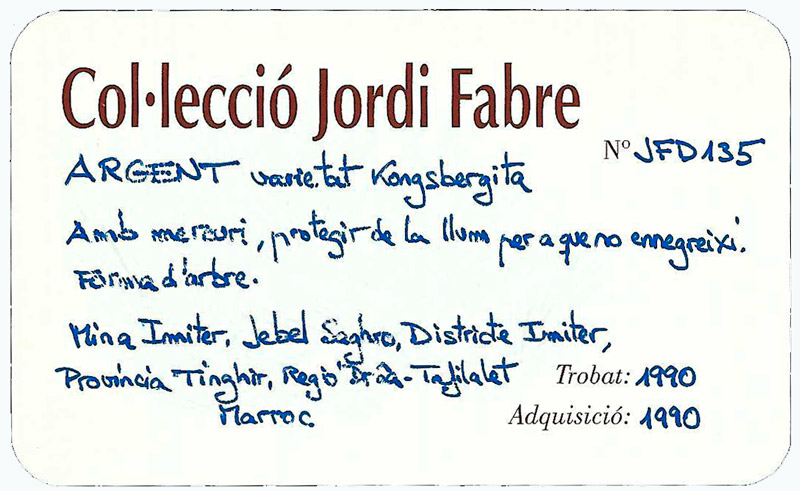 Col·lecció Jordi Fabre
Nº JFD135
ARGENT varietat Kongsbergita
Amb mercuri, protegir de la llum per a que no ennegreixi.
Forma d'arbre.
Mina Imiter, Jebel Saghro, Districte Imiter,
Província Tinghir, Regió Drâa-Tafilalet
Trobat: 1990
Marroc
Adquisició: 1990